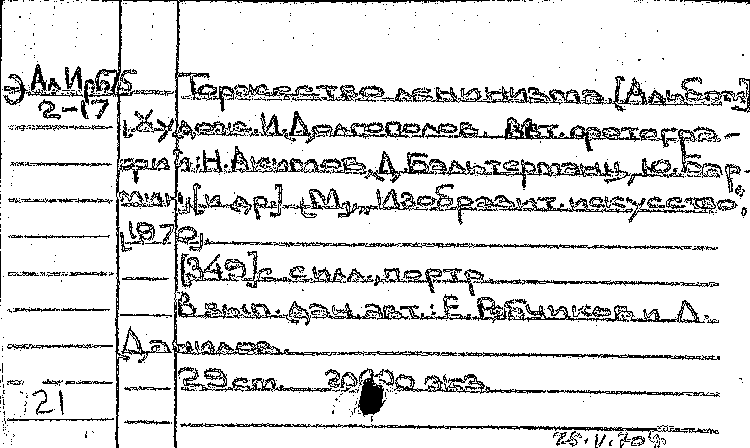 Э АлИрб/5
2-17
Торжество ленинизма. [Альбом]
[Худож. И. Долгополов. Авт. фотогра-
фий: Н. Акимов, Д. Бальтерманц, Ю. Бар-
мин, [и др.] [М., „Изобразит. искусство",
1970].
[349] с. с илл., портр.
В вып. дан. авт.: Е. Рябчиков и Л.
Данилов.
29 см. 20000 экз.
21
25.V.70г.